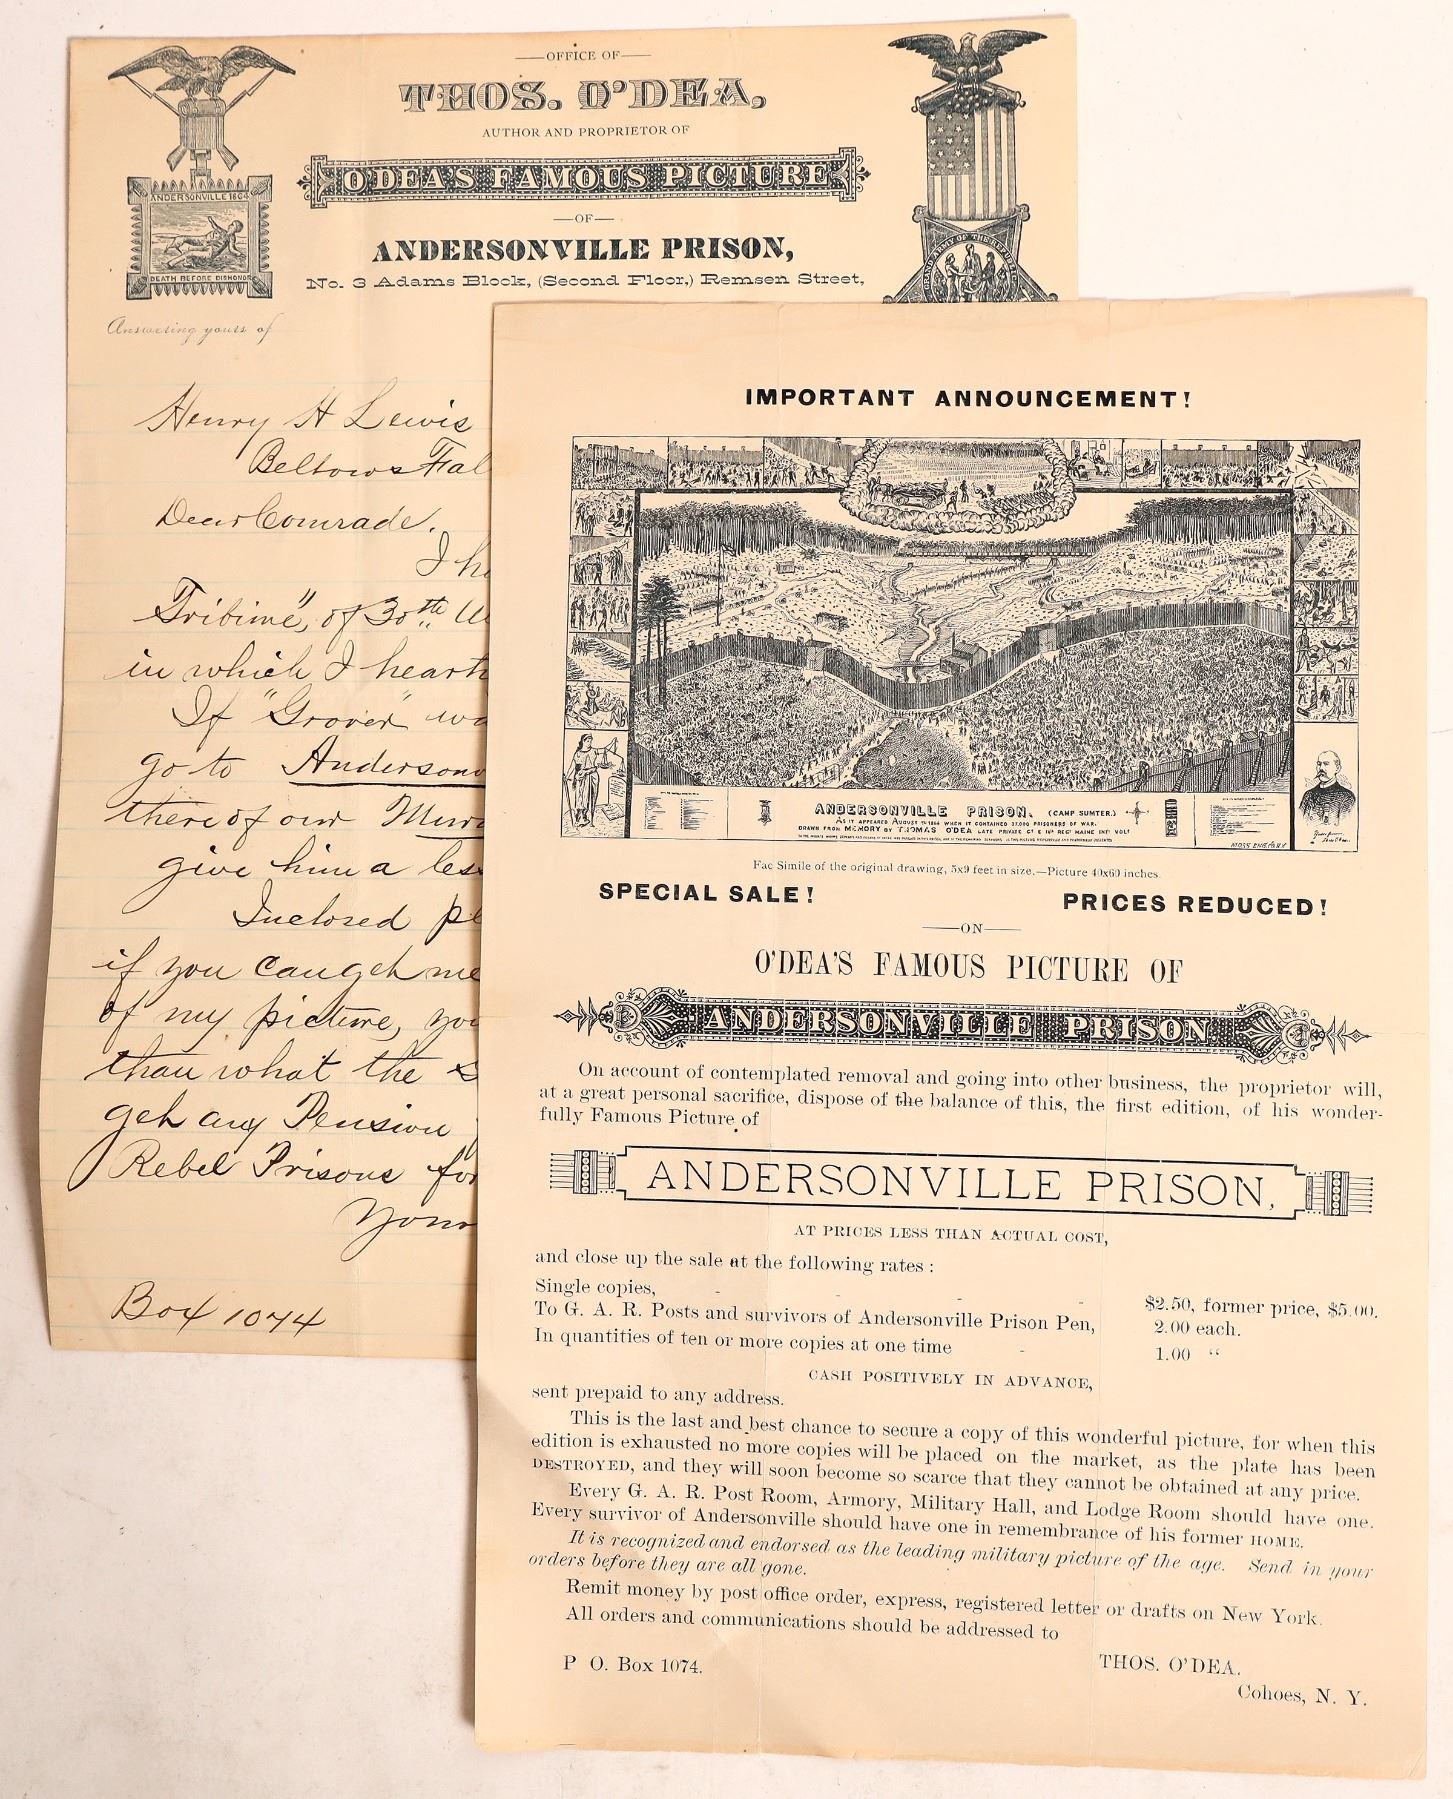 OFFICE OF
THOS. O'DEA,
AUTHOR AND PROPRIETOR OF
O'DEA'S FAMOUS PICTURE
OF
ANDERSONVILLE PRISON,
No. 3 Adams Block, (Second Floor,) Remsen Street,
ANDERSONVILLE 1864
DEATH BEFORE DISHONOR
GRAND ARMY OF THE REPUBLIC
Answering yours of
Henry H Lewis
Bellows Fal
Dear Comrade.
I h
Tribune", of 30th
in which I heart
If "Grover" wa
go to Anderson
there of our Mur
give him a les
Inclosed pl
if you can get me
of my picture, you
than what the s
get any Pension
Rebel Prisons for
Your
Box 1074
IMPORTANT ANNOUNCEMENT!
ANDERSONVILLE PRISON. (CAMP SUMTER.)
AS IT APPEARED AUGUST 1st 1864 WHEN IT CONTAINED 35,000 PRISONERS OF WAR.
DRAWN FROM MEMORY BY THOMAS O'DEA LATE PRIVATE Co. E 16th REGt MAINE INFt VOLs
MOSS ENG. Co. N.Y.
Fac Simile of the original drawing, 5x9 feet in size.—Picture 40x60 inches.
SPECIAL SALE! PRICES REDUCED!
ON
O'DEA'S FAMOUS PICTURE OF
ANDERSONVILLE PRISON.
On account of contemplated removal and going into other business, the proprietor will,
at a great personal sacrifice, dispose of the balance of this, the first edition, of his wonder-
fully Famous Picture of
ANDERSONVILLE PRISON,
AT PRICES LESS THAN ACTUAL COST,
and close up the sale at the following rates :
Single copies, - - - $2.50, former price, $5.00.
To G. A. R. Posts and survivors of Andersonville Prison Pen, 2.00 each.
In quantities of ten or more copies at one time - 1.00 "
CASH POSITIVELY IN ADVANCE,
sent prepaid to any address.
This is the last and best chance to secure a copy of this wonderful picture, for when this
edition is exhausted no more copies will be placed on the market, as the plate has been
DESTROYED, and they will soon become so scarce that they cannot be obtained at any price.
Every G. A. R. Post Room, Armory, Military Hall, and Lodge Room should have one.
Every survivor of Andersonville should have one in remembrance of his former HOME.
It is recognized and endorsed as the leading military picture of the age. Send in your
orders before they are all gone.
Remit money by post office order, express, registered letter or drafts on New York.
All orders and communications should be addressed to
P O. Box 1074. THOS. O'DEA.
Cohoes, N. Y.